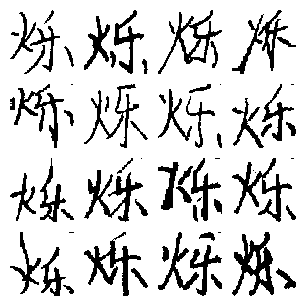 烁烁烁烁
烁烁烁烁
烁烁烁烁
烁烁烁烁